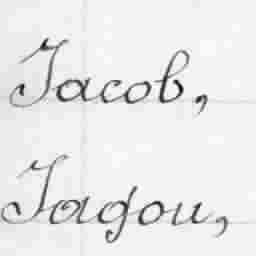 Jacob,
Jagou,